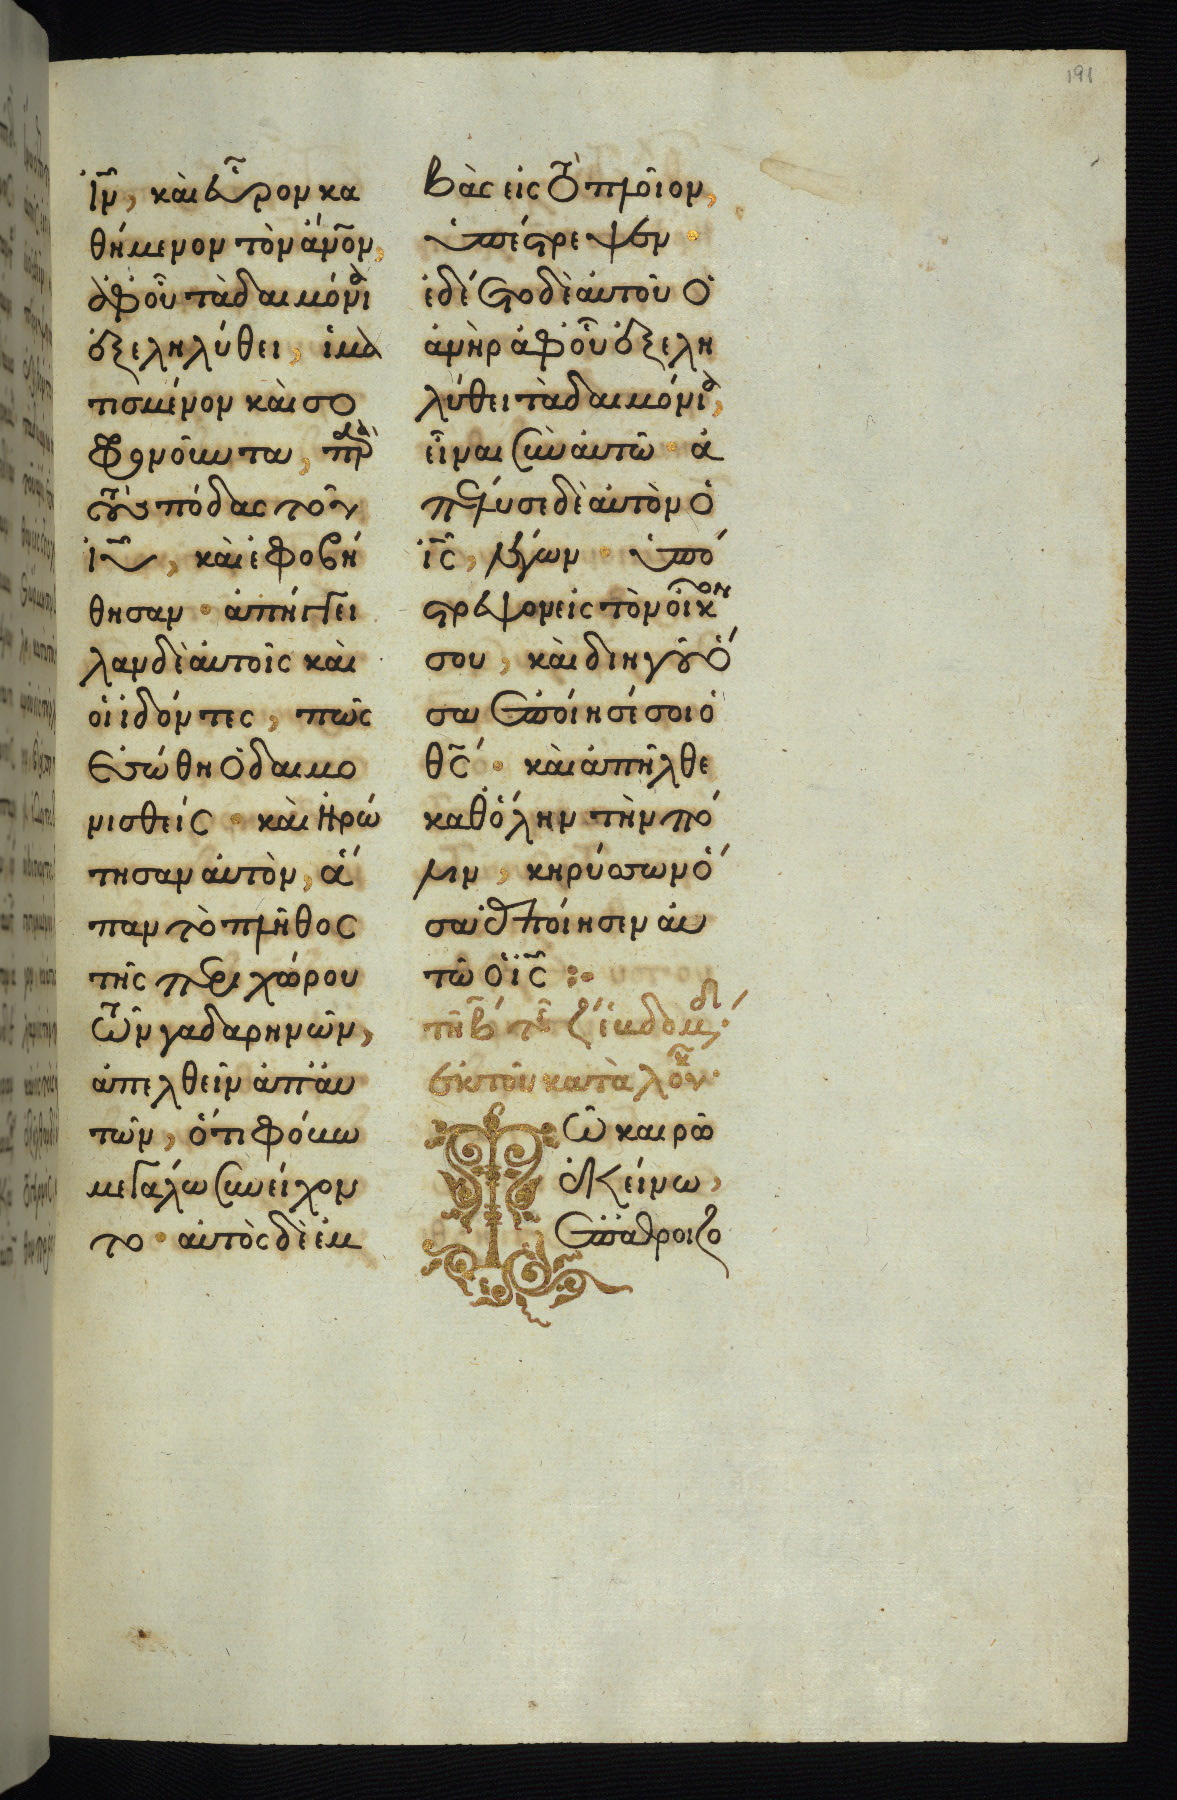 191
ἰν̄, καὶ εὗρον κα
θήμενον τὸν ἄνο̄ν,
ἀφ' οὗ τὰ δαιμόνια
ἐξεληλύθει, ἱμα
τισμένον καὶ σω
φρονοῦντα, παρὰ
τοὺς πόδας τοῦ
ἰῡ, καὶ ἐφοβή
θησαν· ἀπήγγει
λαν δὲ αὐτοῖς καὶ
οἱ ἰδόντες, πῶς
ἐσώθη ὁ δαιμο
νισθείς· καὶ ἠρώ
τησαν αὐτὸν, ἅ
παν τὸ πλῆθος
τῆς περιχώρου
τῶν γαδαρηνῶν,
ἀπελθεῖν ἀπ' αὐ
τῶν, ὅτι φόβω
μεγάλω συνείχον
το· αὐτὸς δὲ ἐμ
βὰς εἰς τὸ πλοῖον,
ὑπέστρεψεν·
ἐδέετο δὲ αὐτοῦ ὁ
ἀνὴρ ἀφ' οὗ ἐξελη
λύθει τὰ δαιμόνια,
εἶναι σὺν αὐτῶ· ἀ
πέλυσε δὲ αὐτὸν ὁ
ἰς̄, λέγων· ὑπό
στρεψον εἰς τὸν οἶκον
σου, καὶ διηγοῦ ὅ
σα ἐποίησέ σοι ὁ
θς̄· καὶ ἀπῆλθε
καθ' ὅλην τὴν πό
λιν, κηρύσσων ὅ
σα ἐποίησεν αὐ
τῶ ὁ ἰς̄ :·
τῆ β τῆς ζ ἑβδομάδι·
ἐκ τοῦ κατὰ λουκᾶν·
Τῶ καιρῶ
ἐκείνω,
ἐπαθροιζο